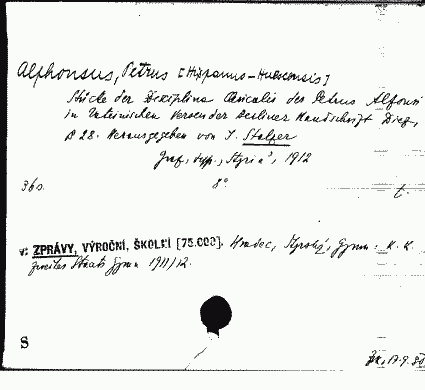 Alphonsus, Petrus [Hispanus-Huescensis]
Stücke der Disciplina Clericalis des Petrus Alfonsi
in lateinischen Versen der Berliner Handschrift Diez,
B 28. Herausgegeben von J. Stalzer
Graz, typ. „Styria", 1912
36 s. 8° t.
v: ZPRÁVY, VÝROČNÍ, ŠKOLNÍ [75.000]. Hradec, Štyrský, Gymn. K. K.
zweites Staats Gymn 1911/12.
S